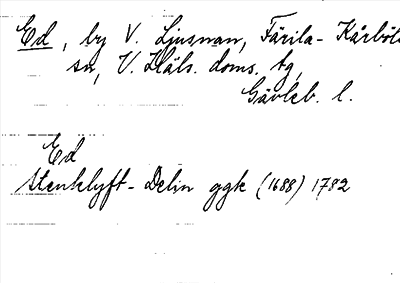 Ed, by V. Ljusnan, Färila-Kårböle
sn, V. Häls. doms. tg,
Gävleb. l.
Ed
Stenklyft-Delin ggk (1688) 1782